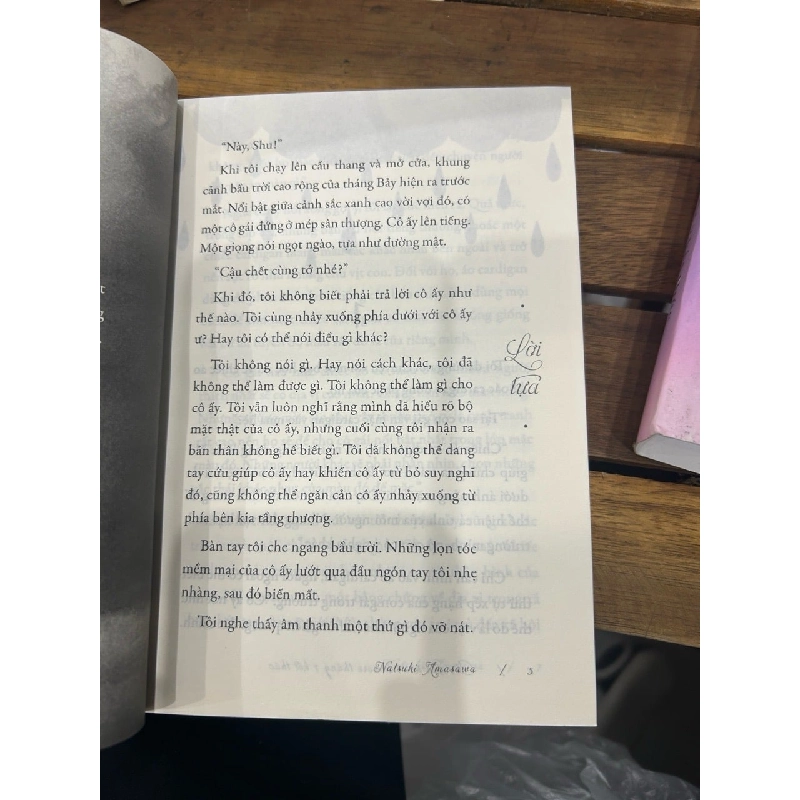 "Này, Shu!"
Khi tôi chạy lên cầu thang và mở cửa, khung
cảnh bầu trời cao rộng của tháng Bảy hiện ra trước
mắt. Nổi bật giữa cảnh sắc xanh cao vời vợi đó, có
một cô gái đứng ở mép sân thượng. Cô ấy lên tiếng.
Một giọng nói ngọt ngào, tựa như đường mật.
"Cậu chết cùng tớ nhé?"
Khi đó, tôi không biết phải trả lời cô ấy như
thế nào. Tôi cùng nhảy xuống phía dưới với cô ấy
ư? Hay tôi có thể nói điều gì khác?
Tôi không nói gì. Hay nói cách khác, tôi đã
không thể làm được gì. Tôi không thể làm gì cho
cô ấy. Tôi vẫn luôn nghĩ rằng mình đã hiểu rõ bộ
mặt thật của cô ấy, nhưng cuối cùng tôi nhận ra
bản thân không hề biết gì. Tôi đã không thể dang
tay cứu giúp cô ấy hay khiến cô ấy từ bỏ suy nghĩ
đó, cũng không thể ngăn cản cô ấy nhảy xuống từ
phía bên kia tầng thượng.
Bàn tay tôi che ngang bầu trời. Những lọn tóc
mềm mại của cô ấy lướt qua đầu ngón tay tôi nhẹ
nhàng, sau đó biến mất.
Tôi nghe thấy âm thanh một thứ gì đó vỡ nát.
Lời
tựa
Natsuki Amasawa / 3
t
g